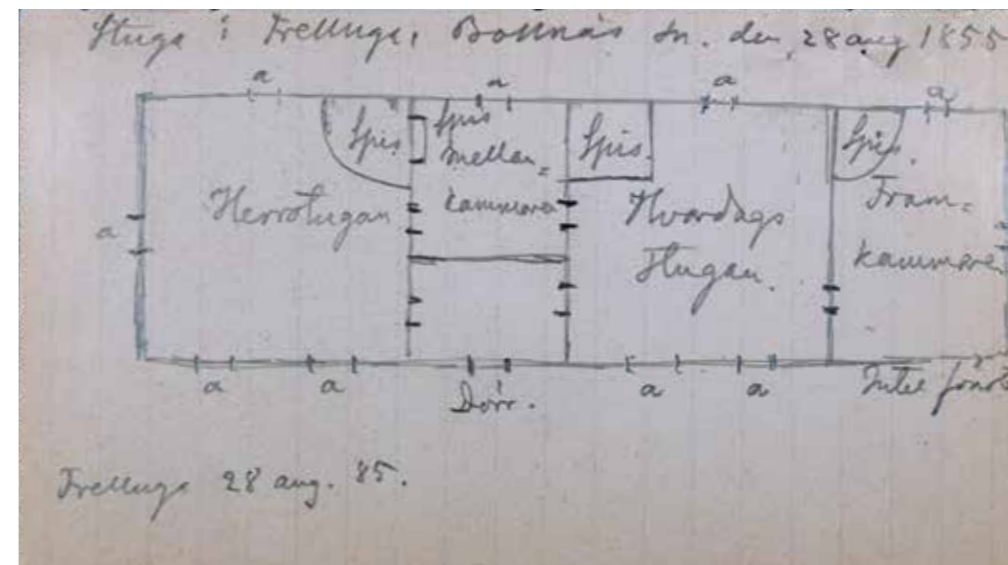 Stuga i Trelluga, Bollnäs sn. den 28 aug 1855
a a a a
Spis Spis Spis. Spis.
mellan=
kammaren
Herrstugan
Hvardags
Stugan.
Fram=
kammaren
a
a a Dörr. a a Intet fönst
Trelluga 28 aug. 85.